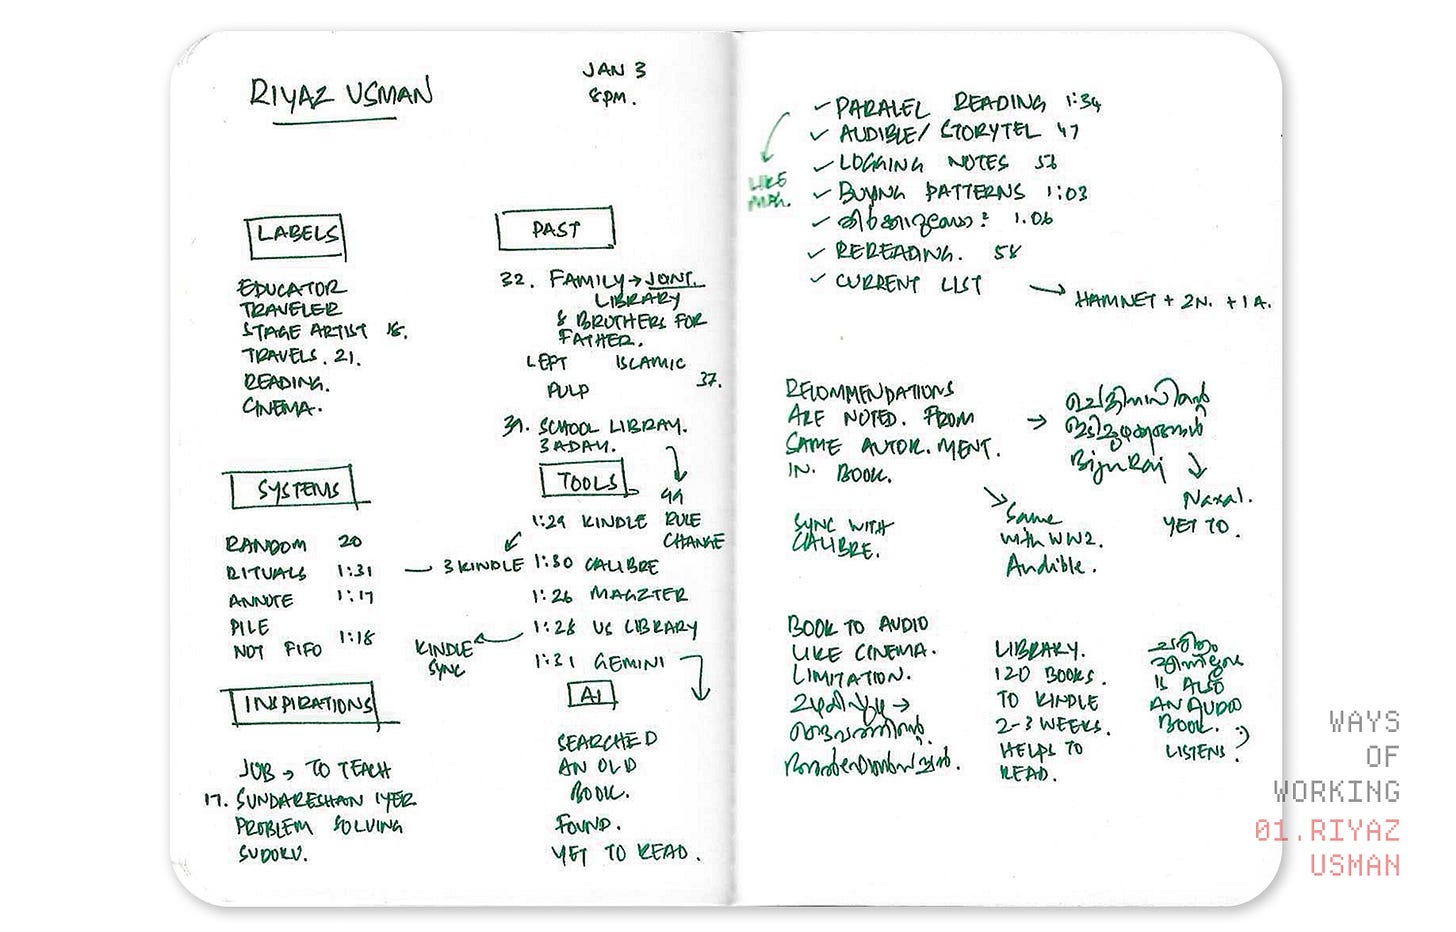 RIYAZ USMAN
JAN 3
8PM.
LABELS
EDUCATOR
TRAVELER
STAGE ARTIST 18.
TRAVELS. 21.
READING.
CINEMA.
PAST
32. FAMILY → JOINT.
LIBRARY
& BROTHERS FOR
FATHER.
LEFT ISLAMIC
PULP 37.
39. SCHOOL LIBRARY.
3 A DAY.
44
RULE
CHANGE
SYSTEMS
RANDOM 20
RITUALS 1:31
ANNOTE 1:17
PILE
NOT FIFO 1:18
TOOLS
1:29 KINDLE
3 KINDLE
1:30 CALIBRE
1:26 MAGZTER
1:28 US LIBRARY
KINDLE
SYNC
1:31 GEMINI
INSPIRATIONS
JOB → TO TEACH
17. SUNDARESHAN IYER
PROBLEM SOLVING
SUDOKU.
AI
SEARCHED
AN OLD
BOOK.
FOUND.
YET TO READ.
✓ PARALEL READING 1:34
✓ AUDIBLE/ STORYTEL 47
✓ LOGGING NOTES 53
✓ BUYNG PATTERNS 1:03
✓ 1.06
✓ REREADING. 58
✓ CURRENT LIST
→ HAMNET + 2N. + 1A.
LIKE
RECOMMENDATIONS
ARE NOTED. FROM
SAME AUTOR. MENT.
IN. BOOK.
→
Biju Raj
Naxal.
YET TO.
SYNC WITH
CALIBRE.
Same
with WW2.
Audible.
BOOK TO AUDIO
LIKE CINEMA.
LIMITATION.
LIBRARY.
120 BOOKS.
TO KINDLE
2-3 WEEKS.
HELPS TO
READ.
IS ALSO
AN AUDIO
BOOK.
LISTENS :)
WAYS
OF
WORKING
01.RIYAZ
USMAN